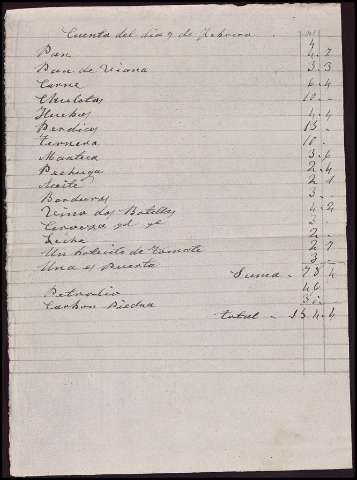 Cuenta del dia 9 de Febrero
Pan 4 2
Pan de Viana 3 3
Carne 6 4
Chuletas 10 -
Huebos 4 4
Perdices 13 -
Ternera 10 -
Manteca 3 6
Pechuga 2 4
Aceite 2 1
Berduras 3 -
Vino dos Botellas 4 2
Cerveza 3
Leche 2 -
Un botecito de Tomate 2 2
Una 3 -
Suma - 78 4
Petroleo 46
Carbon Piedra 30
total - 154 - 4